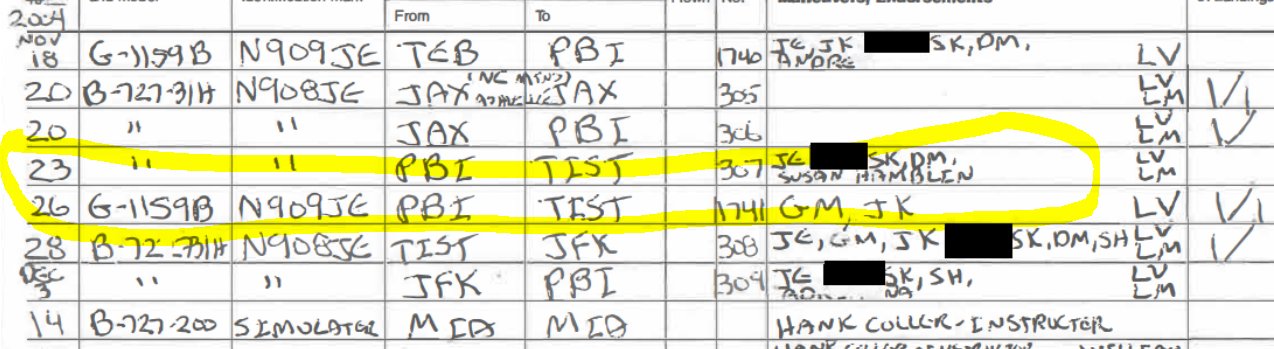 From To
2004
NOV
18 G-1159B N909JE TEB PBI 1740 JE, JK SK, DM, ANDRE LV
20 B-727-31H N908JE JAX JAX 305 LV LM 1/1
20 " " JAX PBI 306 LV LM
23 " " PBI TIST 307 JE SK, DM, SUSAN HAMBLIN LV LM
26 G-1159B N909JE PBI TIST 1741 GM, JK LV 1/1
28 B-727-31H N908JE TIST JFK 308 JE, GM, JK SK, DM, SH LV LM
DEC
3 " " JFK PBI 309 JE SK, SH, LV LM
14 B-727-200 SIMULATER MIA MIA HANK COLLER-INSTRUCTER